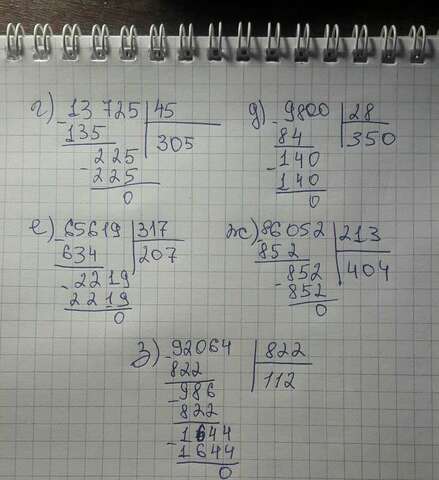 г) 13725 | 45
135 | 305
- 225
225
0
д) 9800 | 28
84 | 350
- 140
140
0
е) 65619 | 317
634 | 207
- 2219
2219
0
ж) 86052 | 213
852 | 404
- 852
852
0
з) 92064 | 822
822 | 112
- 986
822
- 1644
1644
0